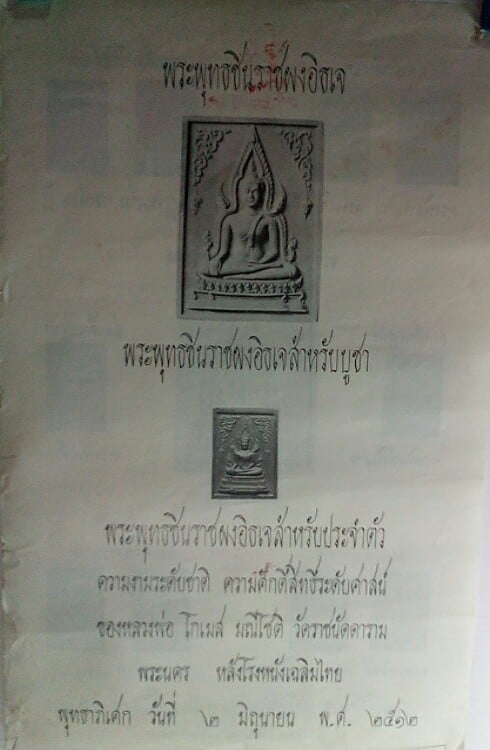 พระพุทธชินราชผงอิธเจ
พระพุทธชินราชผงอิธเจสำหรับบูชา
พระพุทธชินราชผงอิธเจสำหรับประจำตัว
ความงามระดับชาติ ความศักดิ์สิทธิ์ระดับศาสน์
ของหลวงพ่อ โกเมส มณีโชติ วัดราชนัดดาราม
พระนคร หลังโรงหนังเฉลิมไทย
พุทธาภิเศก วันที่ ๒ มิถุนายน พ.ศ. ๒๕๑๒